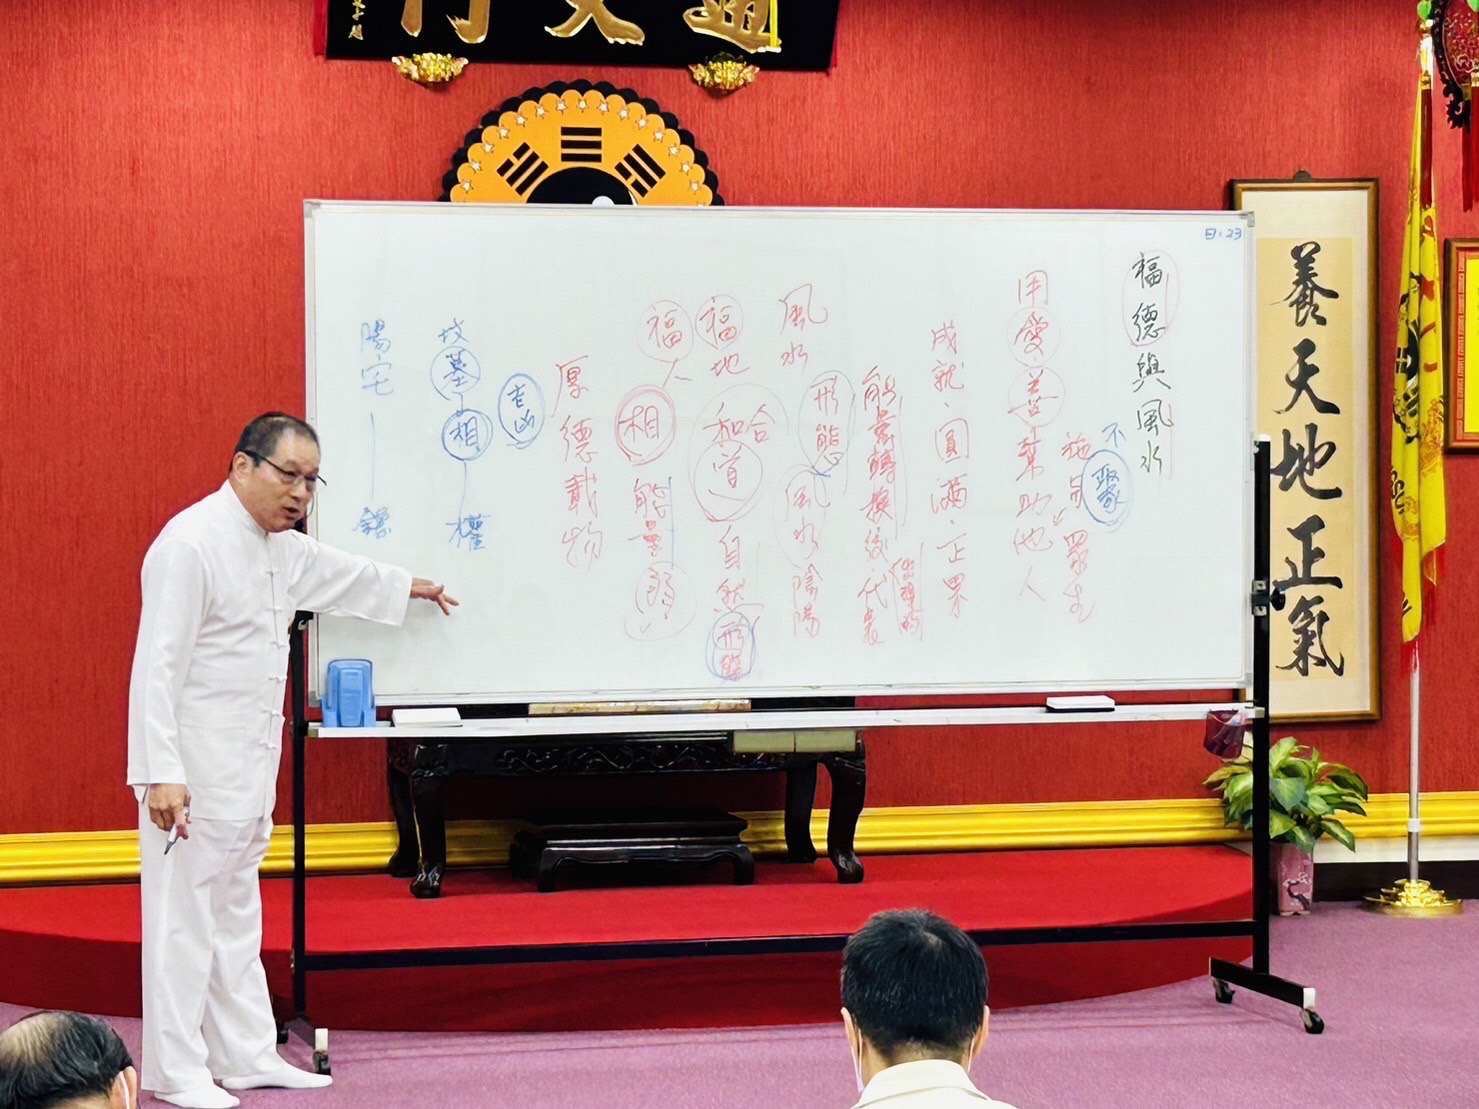 養天地正氣
福德與風水
不聚
眾生
用愛善幫助他人
成就圓滿正果
能量轉換
代表
風水
形態
風水陰陽
福地
和合
道
自然形態
福人
相
能量
厚德載物
吉凶
坟墓相—權
陽宅